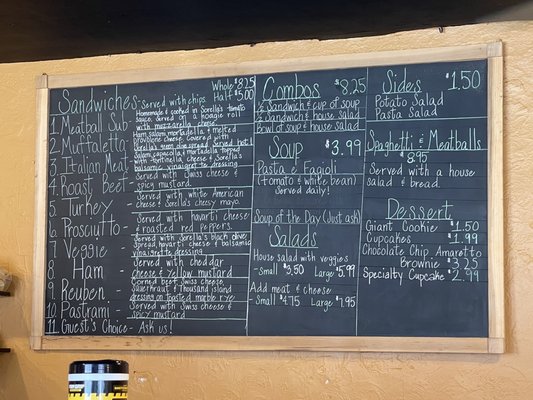 Sandwiches - served with chips
Whole $8.25
Half $5.00
1. Meatball Sub
Homemade & cooked in Sorella's tomato
sauce. Served on a hoagie roll
with mozzarella cheese
2. Muffaletta
Ham, salami, mortadella & melted
provolone cheese. Covered with
Sorella's olive spread. Served hot!
3. Italian Meat
Salami, capicolla & mortadella. Served
with fontinella cheese & Sorella's
balsamic vinaigrette dressing
4. Roast Beef
Served with Swiss cheese &
spicy mustard
5. Turkey
Served with white American
cheese & Sorella's chesy mayo.
6. Prosciutto -
Served with havarti cheese
& roasted red peppers.
7. Veggie
Served with Sorella's black olive
Spread, havarti cheese & balsamic
vinaigrette dressing
8. Ham -
Served with cheddar
cheese & yellow mustard
9. Reuben -
Corned beef, Swiss cheese,
Sauerkraut & Thousand island
dressing on toasted marble rye
10. Pastrami -
Served with Swiss cheese &
spicy mustard
11. Guest's Choice - Ask us!
Combos $8.25
½ Sandwich & cup of soup
½ Sandwich & house salad
Bowl of soup & house salad
Soup $3.99
Pasta & Fagioli
(tomato & white bean)
Served daily!
Soup of the Day (Just ask)
Salads
House salad with veggies
- Small $3.50 Large $5.99
Add meat & cheese
- Small $4.75 Large $7.95
Sides $1.50
Potato Salad
Pasta Salad
Spaghetti & Meatballs
$8.95
Served with a house
salad & bread.
Dessert
Giant Cookie $1.50
Cupcakes $1.99
Chocolate Chip Amaretto
Brownie $3.25
Specialty Cupcake $2.99